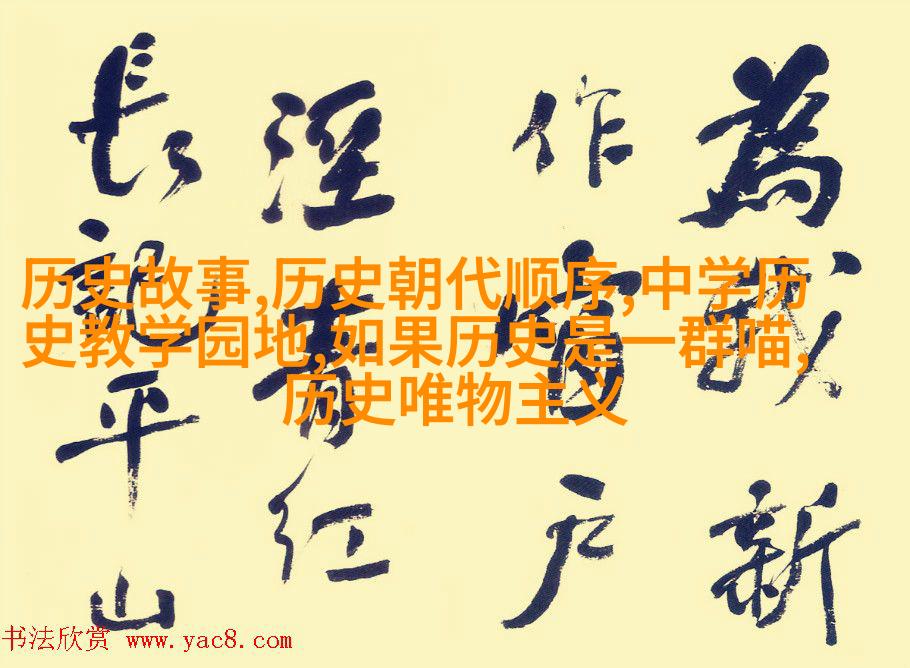 為我新
作窗户
溼青红
長記平山
历史故事,历史朝代顺序,中学历
史教学园地,如果历史是一群喵,
历史唯物主义
书法欣赏 www.yac8.com